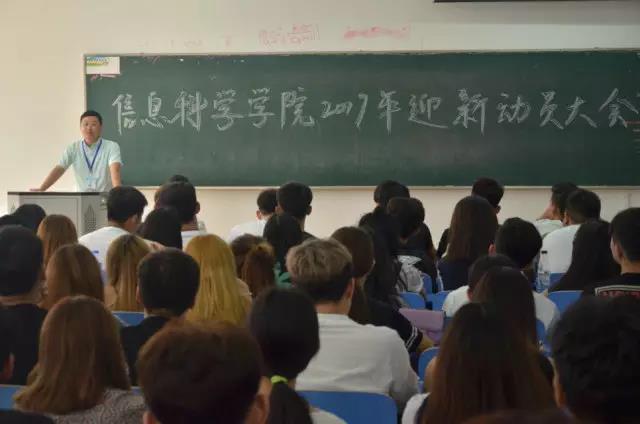 信息科学学院2017年迎新动员大会